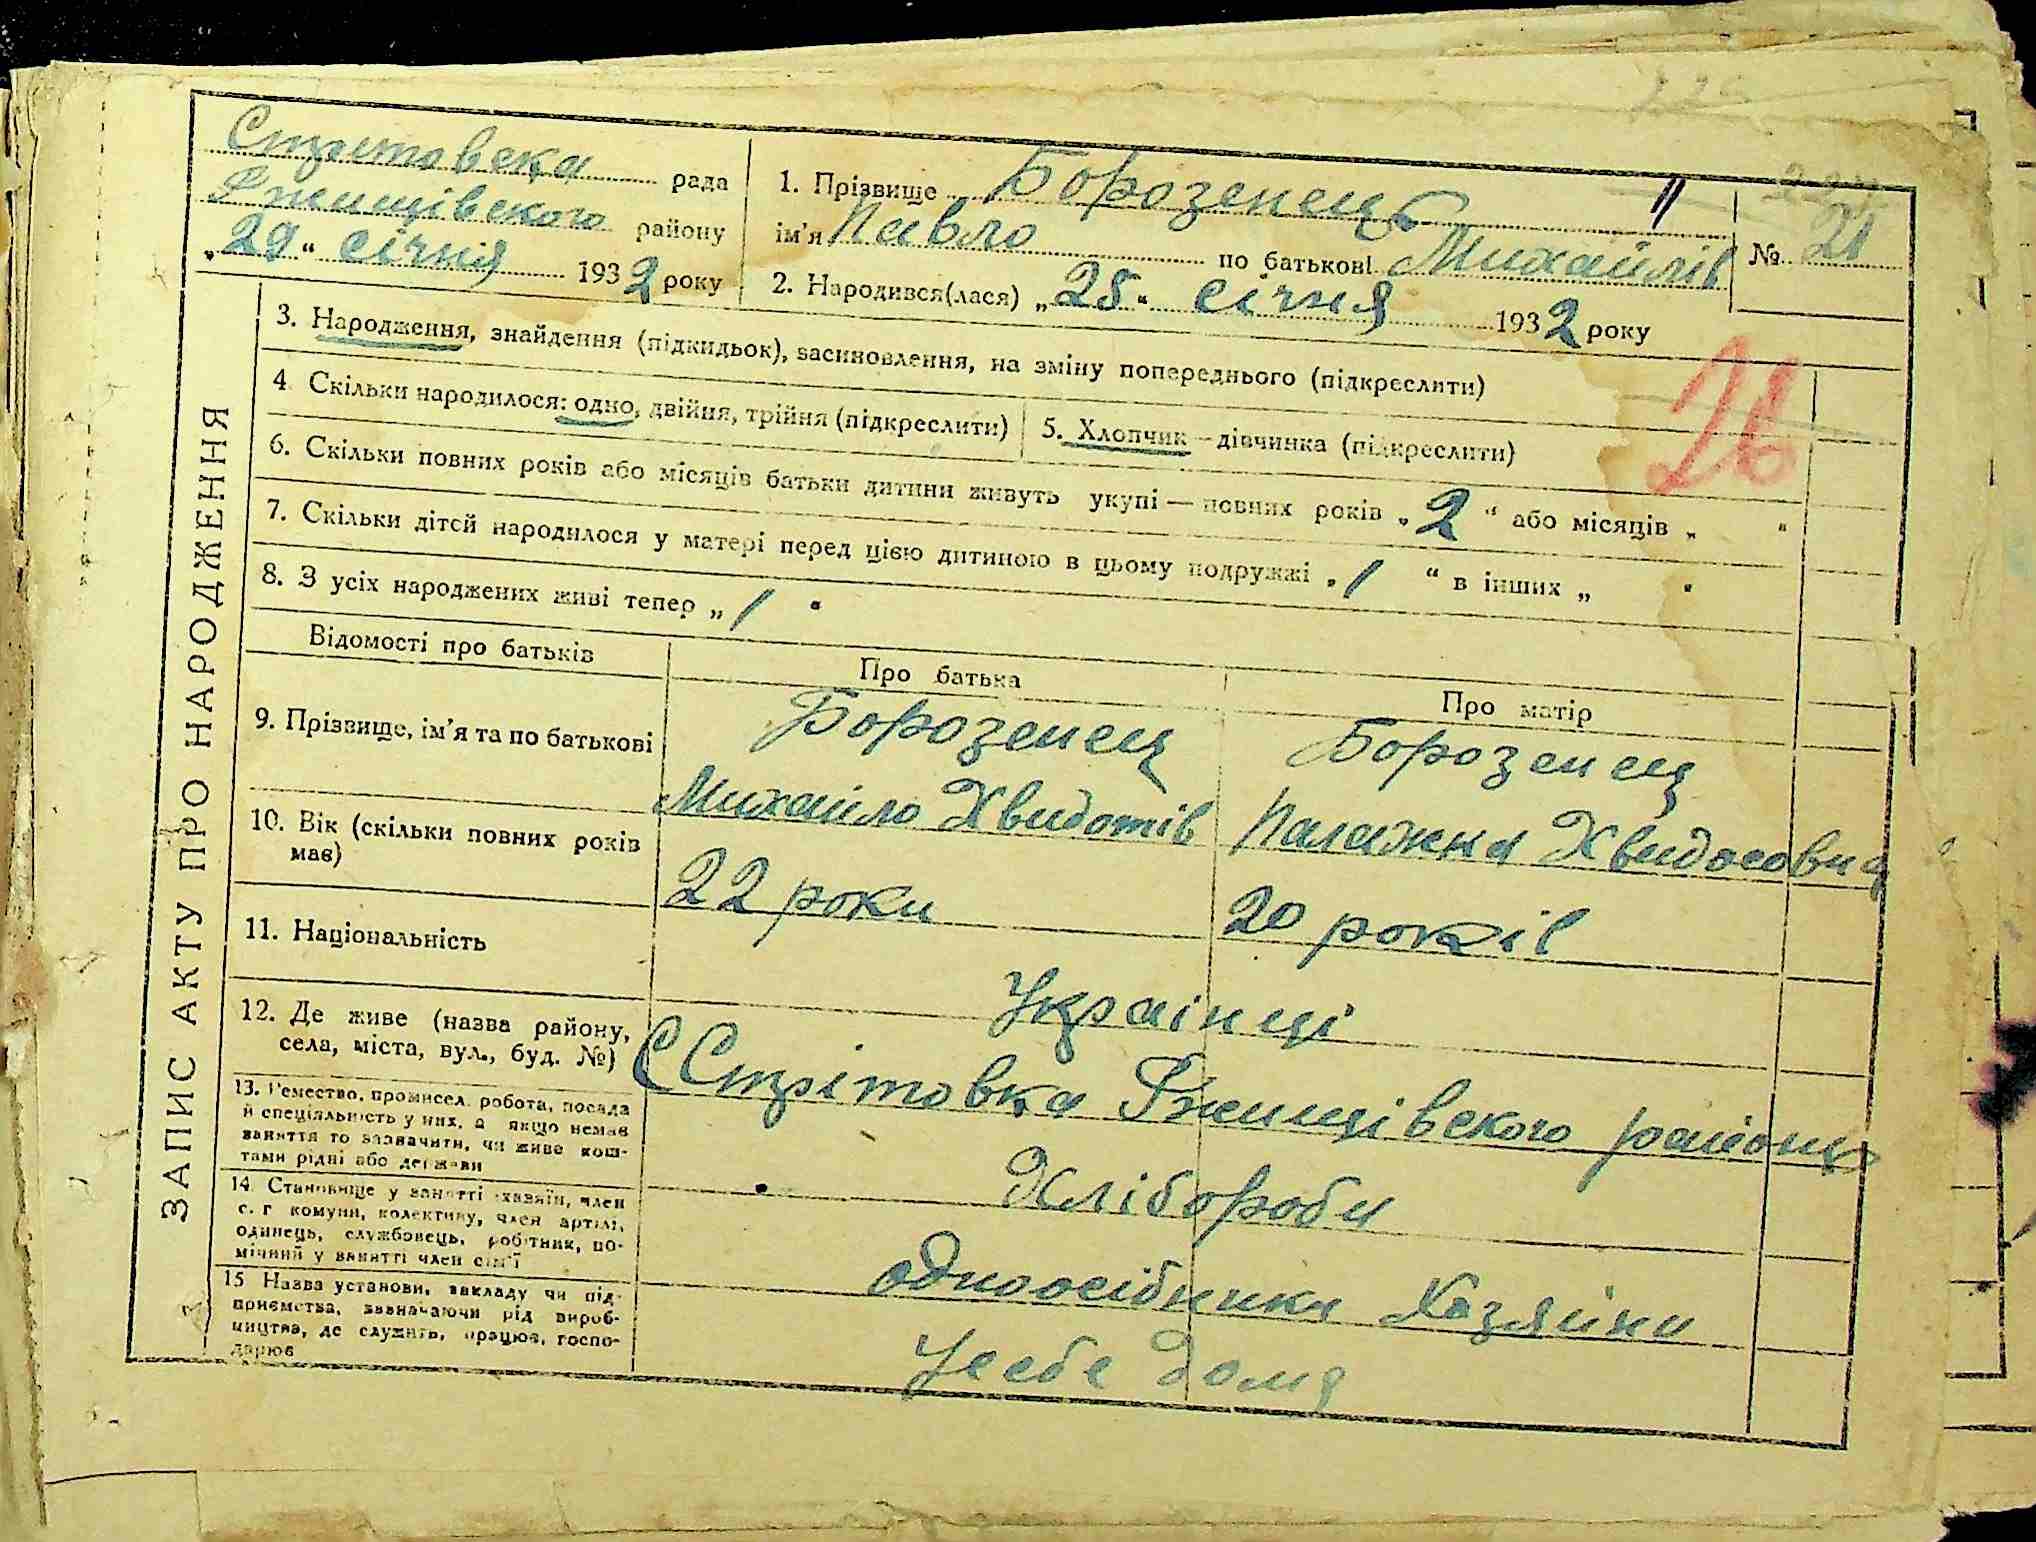 Стрітовска рада
Ржищівского району
„29“ січня 1932 року
1. Прізвище Борозенець
ім'я Павло по батькові Михайлів
2. Народився(лася) „25“ січня 1932 року
№ 21
3. Народження, знайдення (підкидьок), засиновлення, на зміну попереднього (підкреслити)
26
4. Скільки народилося: одно, двійня, трійня (підкреслити)
5. Хлопчик — дівчинка (підкреслити)
6. Скільки повних років або місяців батьки дитини живуть укупі — повних років „2“ або місяців „ “
7. Скільки дітей народилося у матері перед цією дитиною в цьому подружжі „1“ в інших „ “
8. З усіх народжених живі тепер „1“
ЗАПИС АКТУ ПРО НАРОДЖЕННЯ
Відомості про батьків
Про батька
Про матір
9. Прізвище, ім'я та по батькові
Борозенец
Михайло Хведотів
Борозенец
Палажка Хведосовна
10. Вік (скільки повних років має)
22 роки
20 років
11. Національність
Украінці
12. Де живе (назва району,
села, міста, вул., буд. №)
С Стрітовка Ржищівского району
13. Ремество, промисел, робота, посада
й спеціяльність у них, а якщо немає
заняття то зазначити, чи живе кош-
тами рідні або держави
Хлібороби
14. Становище у занятті хазяїн, член
с. г. комуни, колективу, член артілі,
одинець, службовець, робітник, по-
мічний у занятті член сім'ї
одноосібники Хазяйни
15 Назва установи, закладу чи під-
приємства, зазначаючи рід вироб-
ництва, де служить, працює, госпо-
дарює
У себе дома